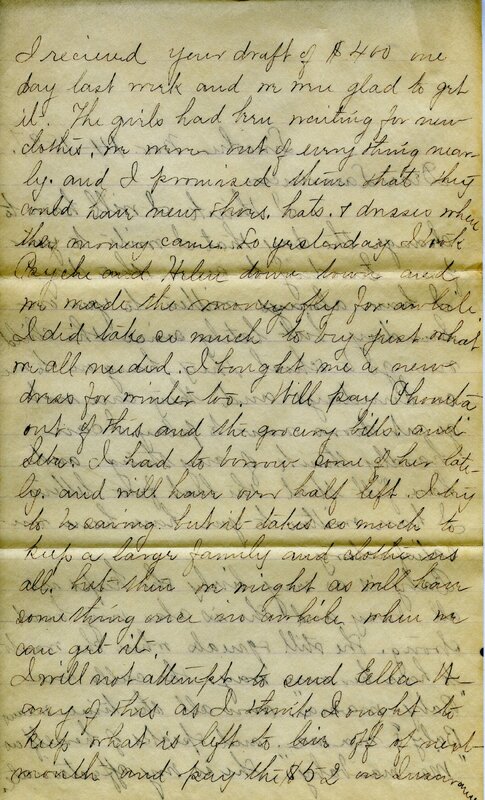 I recieved your draft of $400 one
day last week and we were glad to get
it. The girls had been waiting for new
clothes. We were out of everything near-
ly. and I promised them that they
could have new shoes. hats. & dresses when
the money came. So yesterday I took
Psyche and Helen down town and
we made the money fly for awhile
I did take so much to buy just what
we all needed. I bought me a new
dress for winter too. Will pay
out of this and the grocery bills. and
I had to borrow some of her late-
ly and will have over half left. I try
to be saving. but it takes so much to
keep a large family and clothe us
all. but then we might as well have
something once in awhile when we
can get it.
I will not attempt to send Ella H-
any of this as I think I ought to
keep what is left to live off of next
month and pay the $52 on Insurance